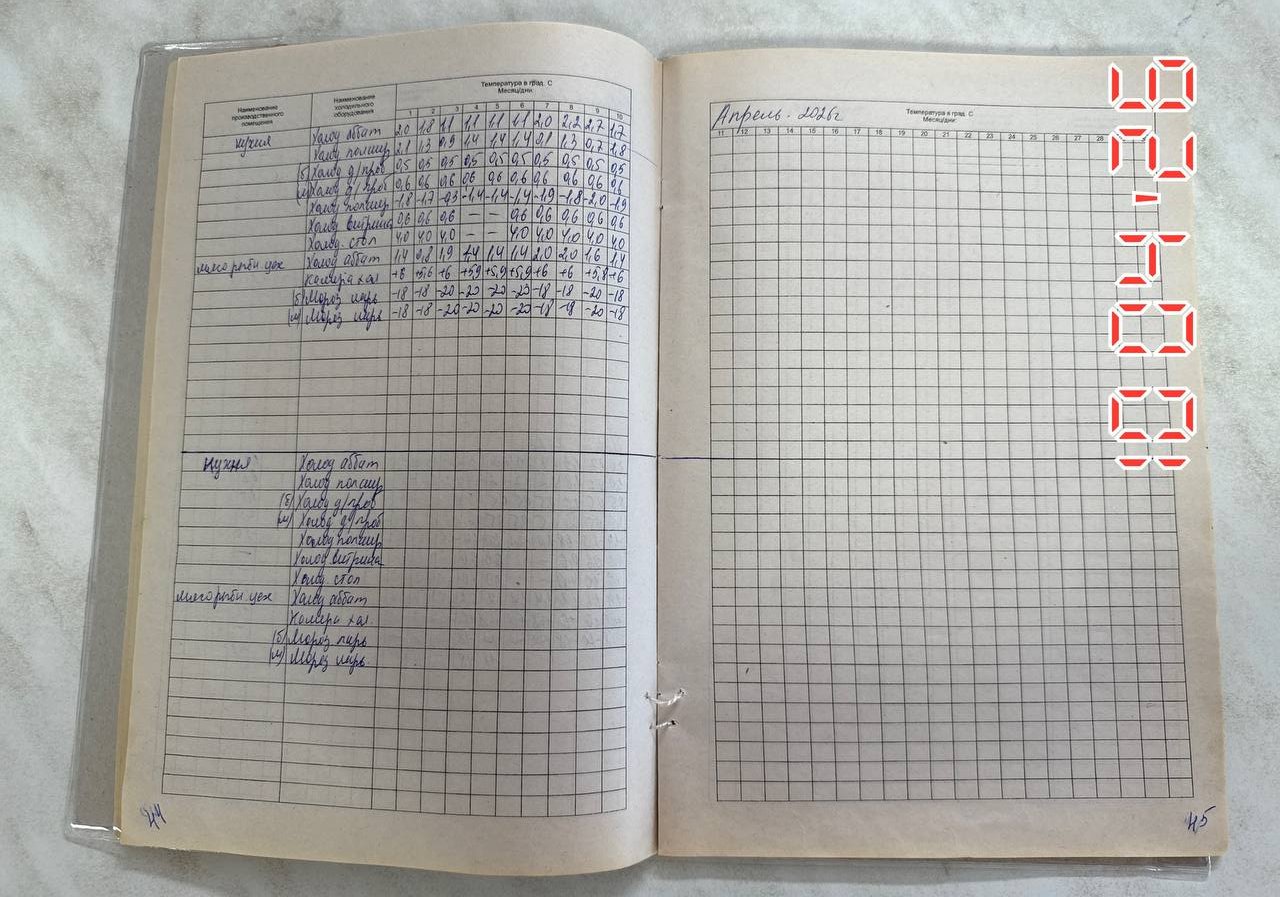 Температура в град. С
Месяц/дни:
Наименование производственного помещения
Наименование холодильного оборудования
1 2 3 4 5 6 7 8 9 10
кухня Холод аббат 2,0 1,8 1,1 1,1 1,1 1,1 2,0 2,2 2,7 1,7
Холод полаир 2,1 1,3 0,9 1,4 1,4 1,4 1,3 0,7 1,8
(б) Холод д/проб 0,5 0,5 0,5 0,5 0,5 0,5 0,5 0,5 0,5 0,5
(м) Холод д/проб 0,6 0,6 0,6 0,6 0,6 0,6 0,6 0,6 0,6 0,6
Холод полаир -1,8 -1,7 -1,4 -1,4 -1,4 -1,9 -1,8 -2,0 -1,9
Холод витрина 0,6 0,6 0,6 – – 0,6 0,6 0,6 0,6 0,6
Холод. стол 4,0 4,0 4,0 – – 4,0 4,0 4,0 4,0 4,0
мясо рыбн цех Холод аббат 1,4 0,8 1,9 1,4 1,4 1,4 2,0 2,0 1,6 1,4
Камера хол +6 +5,6 +6 +5,9 +5,9 +5,9 +6 +6 +5,8 +6
(б) Мороз ларь -18 -18 -20 -20 -20 -20 -18 -18 -20 -18
(м) Мороз ларь -18 -18 -20 -20 -20 -20 -18 -18 -20 -18
кухня Холод аббат
Холод полаир
(б) Холод д/проб
(м) Холод д/проб
Холод полаир
Холод витрина
Холод стол
мясо рыбн цех Холод аббат
Камера хол
(б) Мороз ларь
(м) Мороз ларь
44
Апрель. 2026г
Температура в град. С
Месяц/дни:
11 12 13 14 15 16 17 18 19 20 21 22 23 24 25 26 27 28
45